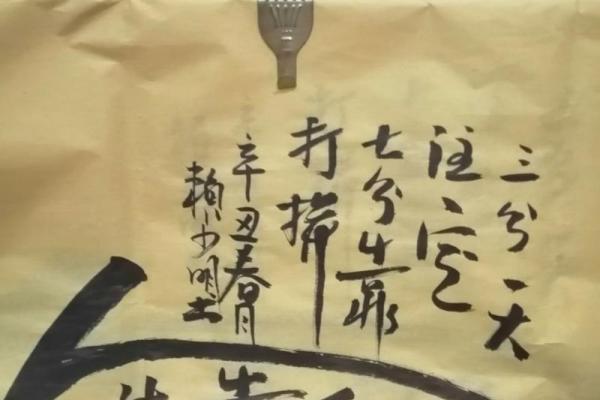 三分天
注定
七分靠
打拼
辛丑春月
賴少明